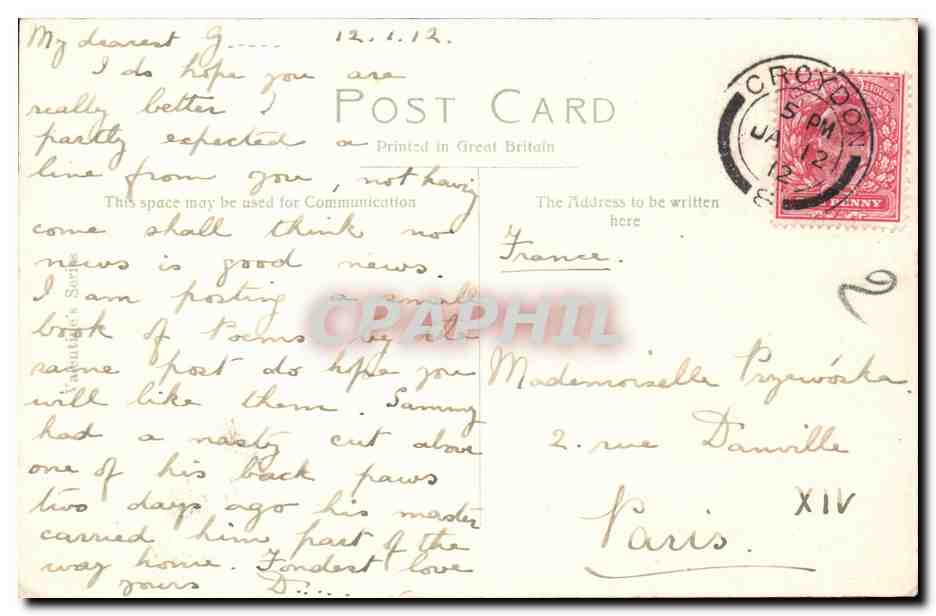 My dearest G..... 12.1.12.
I do hope you are
really better I
partly expected a
line from you, not having
come shall think no
news is good news.
I am posting a small
book of Poems by the
same post do hope you
will like them. Sammy
had a nasty cut above
one of his back paws
two days ago his master
carried him part of the
way home. Fondest love
yours D.....
POST CARD
Printed in Great Britain
This space may be used for Communication
The Address to be written
here
Valentine's Series
CROYDON
5 PM
JA 12
12
8
PENNY
France.
2
Mademoiselle Przewóska.
2. rue Danville
XIV
Paris.
CPAPHIL